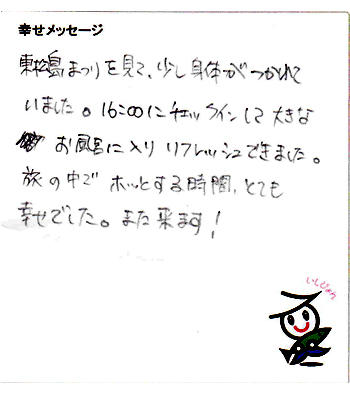 幸せメッセージ
東松島まつりを見て、少し身体がつかれて
いました。16:00にチェックインして大きな
お風呂に入りリフレッシュできました。
旅の中でホッとする時間、とても
幸せでした。また来ます!